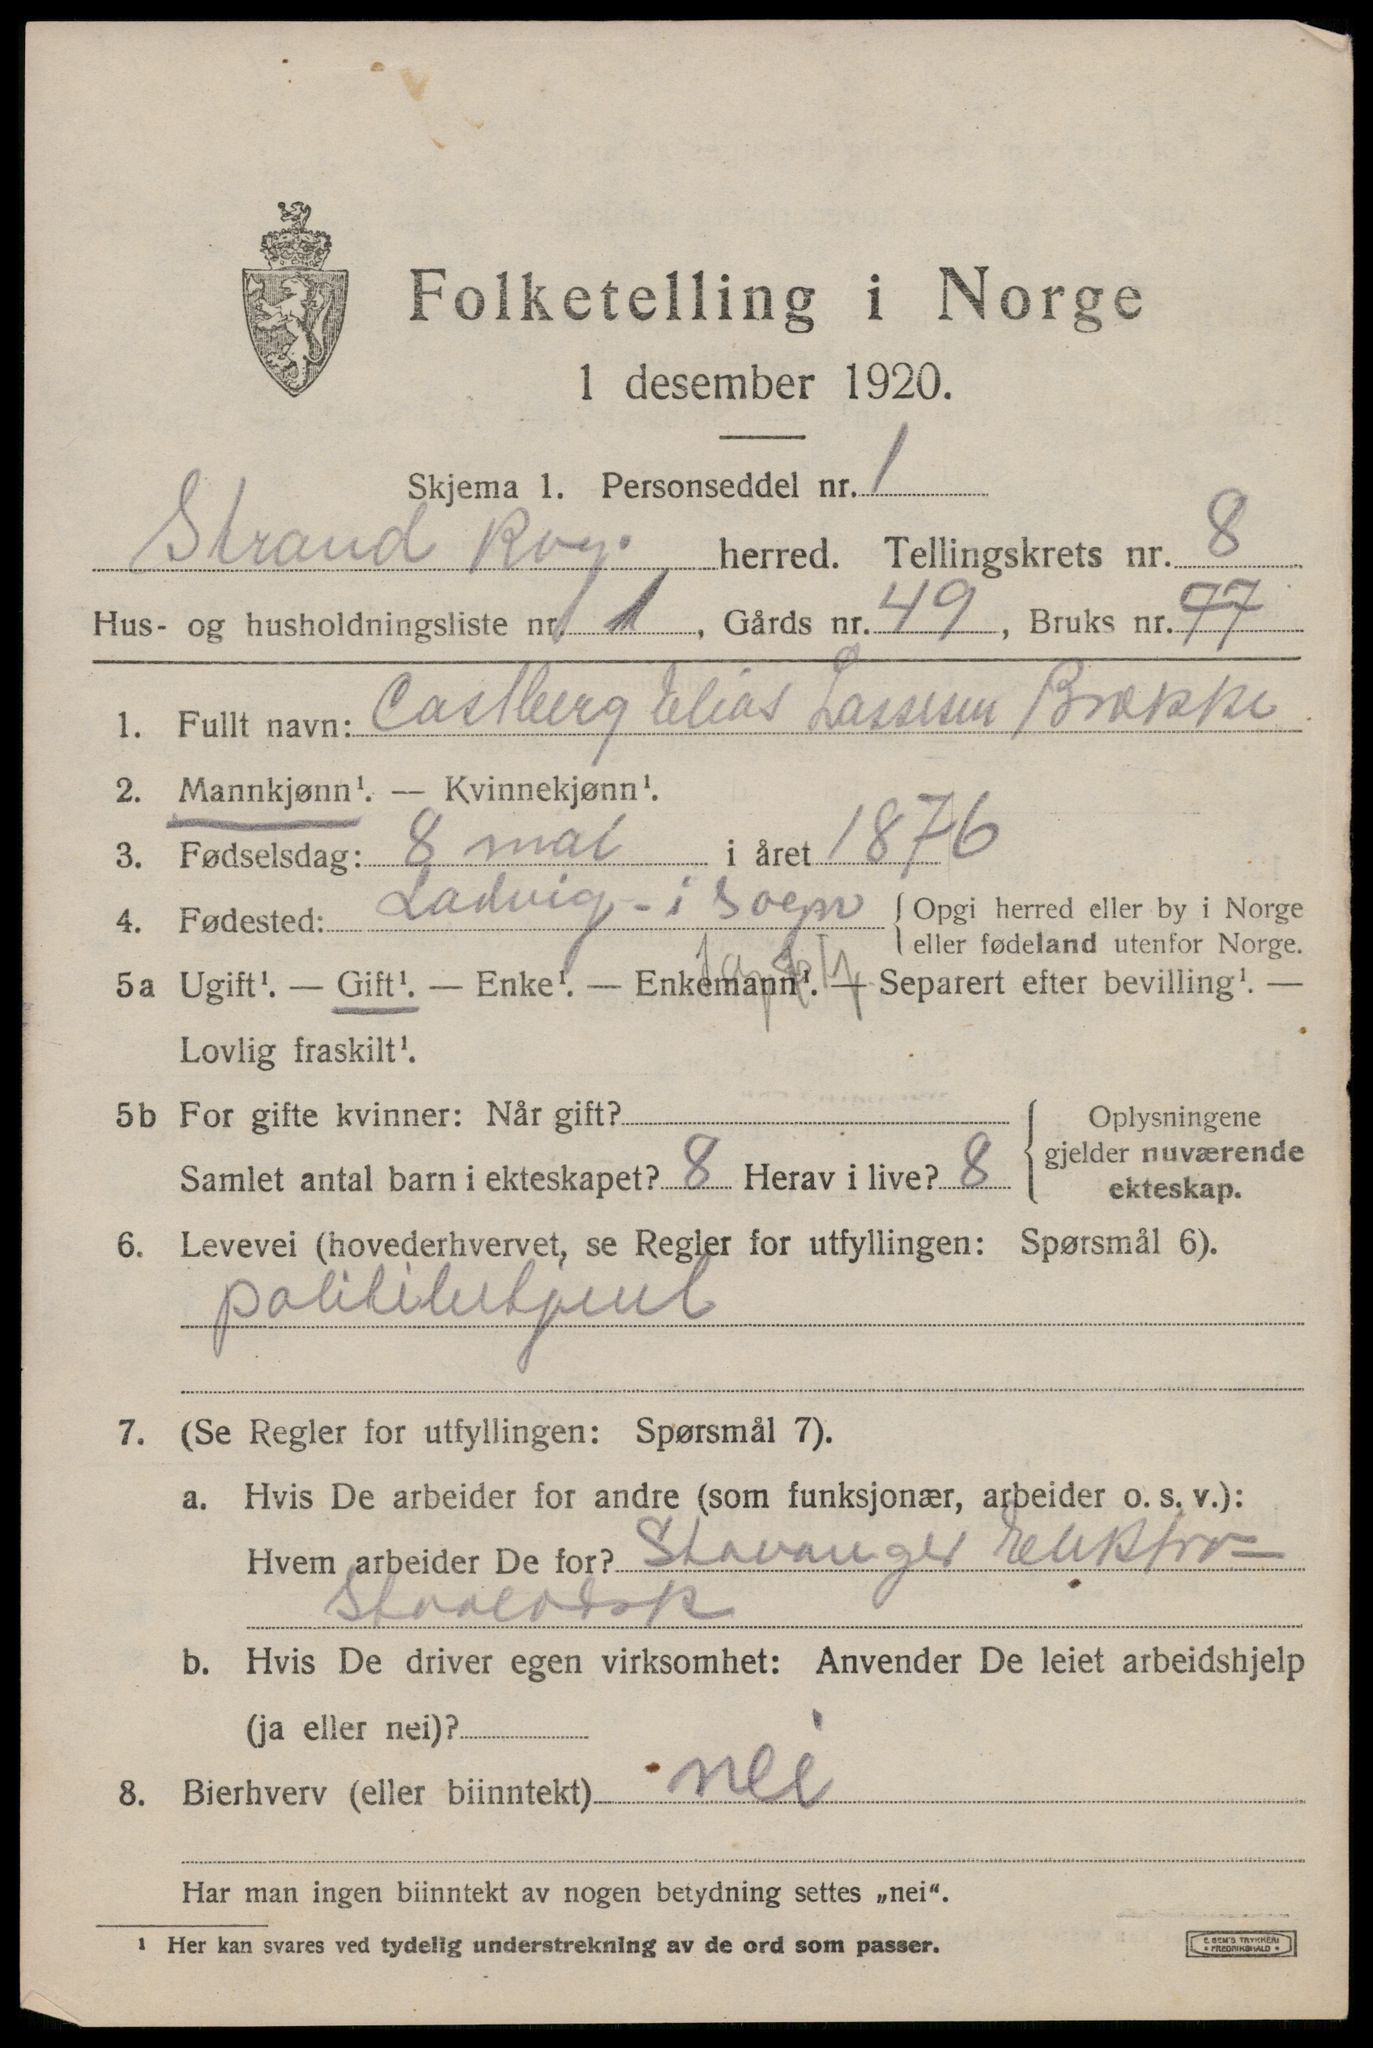 Folketelling i Norge
1 desember 1920.
Skjema 1. Personseddel nr. 1
Strand Rog. herred. Tellingskrets nr. 8
Hus- og husholdningsliste nr. 1, Gårds nr. 49, Bruks nr. 77
1. Fullt navn: Castberg Elias Lassesen Brække
2. Mannkjønn¹. — Kvinnekjønn¹.
3. Fødselsdag: 8 mai i året 1876
4. Fødested: Ladvig - i Sogn { Opgi herred eller by i Norge
eller fødeland utenfor Norge.
5a Ugift¹. — Gift¹. — Enke¹. — Enkemann¹. — Separert efter bevilling¹. —
Lovlig fraskilt¹.
5b For gifte kvinner: Når gift?
Samlet antal barn i ekteskapet? 8 Herav i live? 8
Oplysningene
gjelder nuværende
ekteskap.
6. Levevei (hovederhvervet, se Regler for utfyllingen: Spørsmål 6).
politibetjent
7. (Se Regler for utfyllingen: Spørsmål 7).
a. Hvis De arbeider for andre (som funksjonær, arbeider o. s. v.):
Hvem arbeider De for? Stavanger Elektro=
b. Hvis De driver egen virksomhet: Anvender De leiet arbeidshjelp
(ja eller nei)?
8. Bierhverv (eller biinntekt) nei
Har man ingen biinntekt av nogen betydning settes „nei“.
¹ Her kan svares ved tydelig understrekning av de ord som passer.
E. SEM'S TRYKKERI
* FREDRIKSHALD *